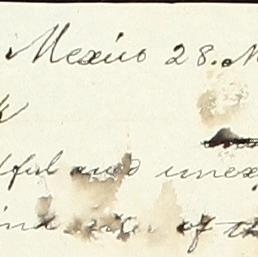 Mexico 28. M
k
tful and unex
ind of th